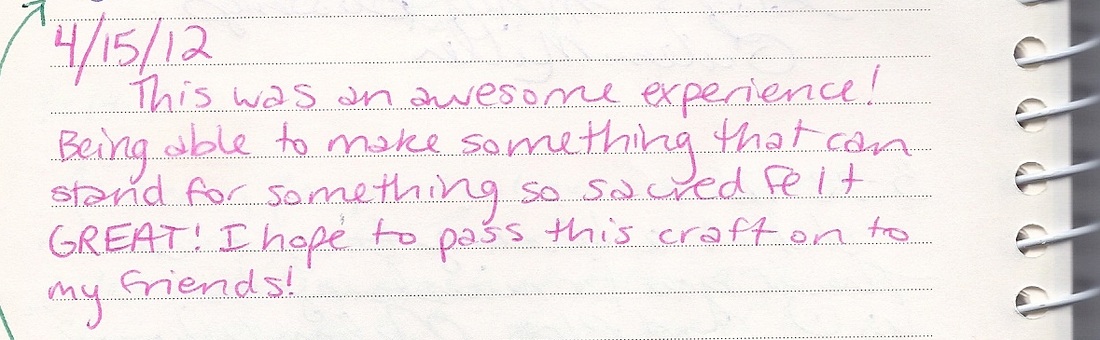 4/15/12
This was an awesome experience!
Being able to make something that can
stand for something so sacred felt
GREAT! I hope to pass this craft on to
my friends!